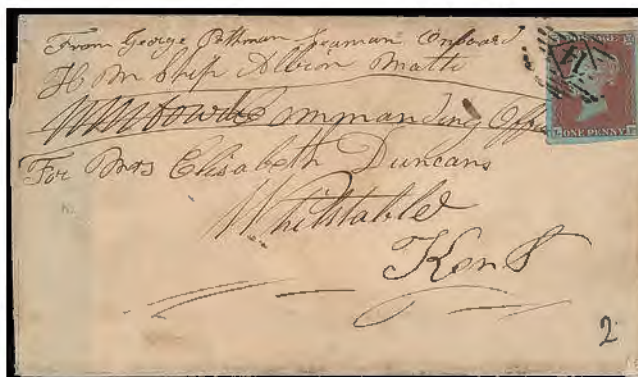 From George Pettman Seaman Onboard
H M Ship Albion Malta
Commanding Offi
For Mrs Elisabeth Duncans
Whitstable
Kent
ONE PENNY
2